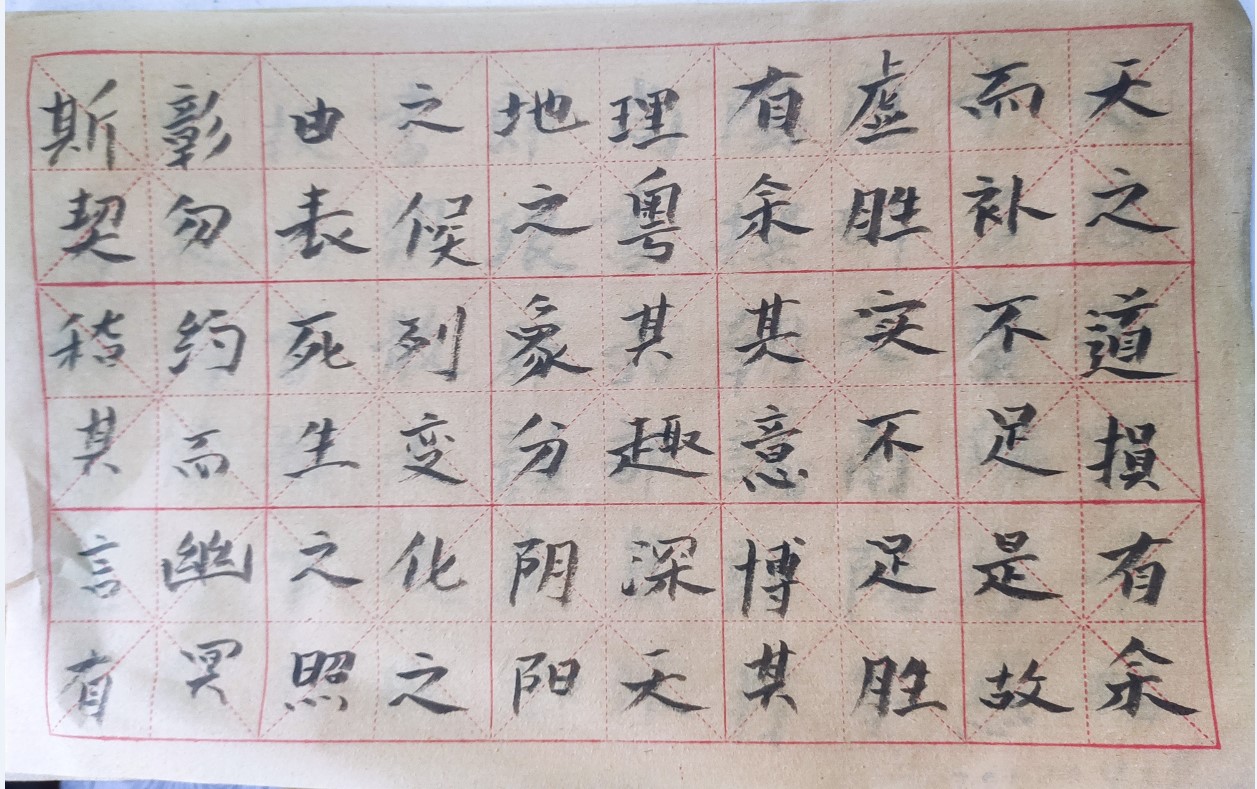 天之道損有余
而补不足是故
虚胜实不足胜
有余其意博其
理粤其趣深天
地之象分阴阳
之候列变化之
由表死生之照
彰勿约而幽冥
斯契稽其言有